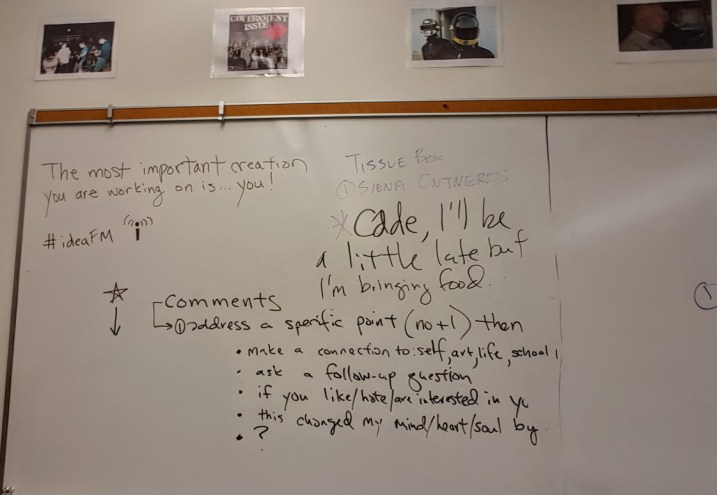 GOVERNMENT
ISSUE
The most important creation
you are working on is... you!
#ideaFM
TISSUE Box
① SIENA
* Cade, I'll be
a little late but
I'm bringing food..
Comments
① address a specific point (no +1) then
• make a connection to: self, art, life, school
• ask a follow-up question
• if you like/hate/are interested in
• this changed my mind/heart/soul by
• ?